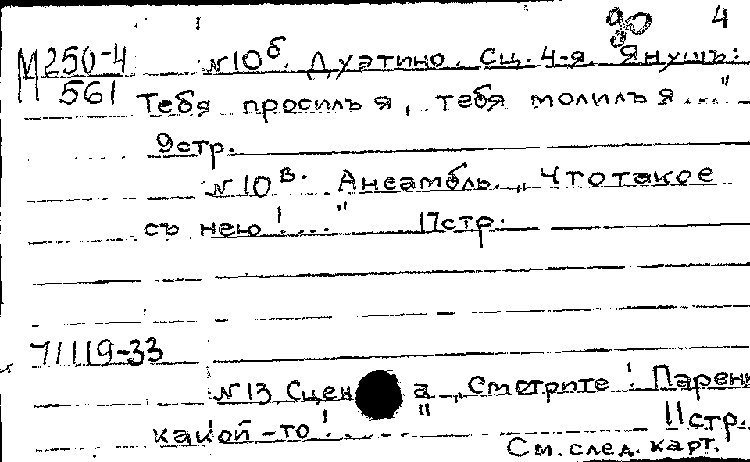 до 4
М250-4 №10б. Дуэтино. Сц. 4-я. Янушъ:
561 Тебя просилъ я, тебя молилъ я..."
9стр.
№10в. Ансамбль. „Что такое
съ нею!..." 17стр.
71119-33
№13 Сцена „Смотрите! Парень
какой-то!...." 11стр.
См. след. карт.